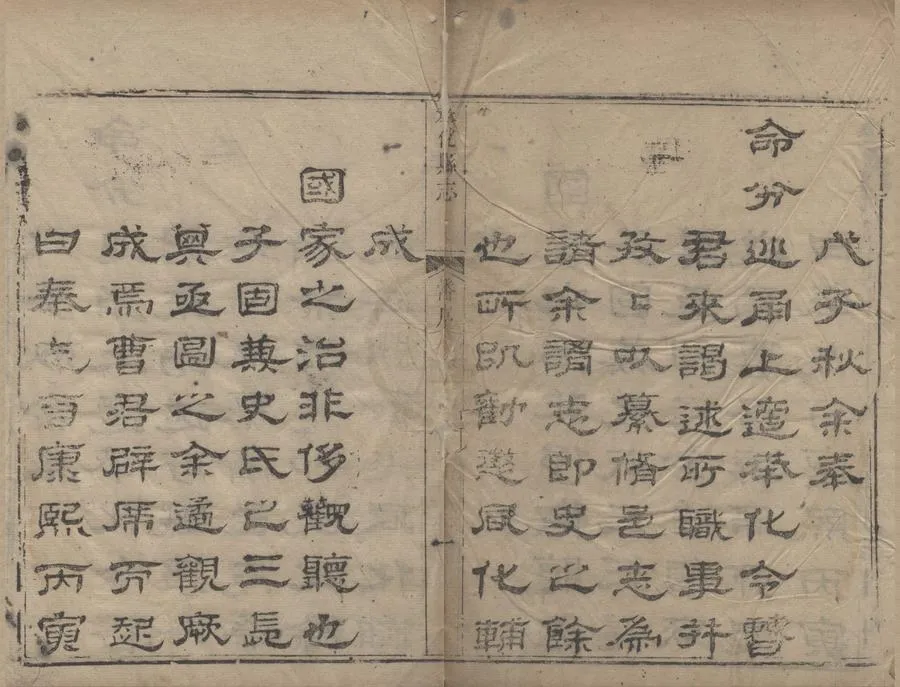 戊子秋余奉
命分巡甬上適奉化令曹
君來謁述所職事并
上以纂脩邑志為
請余謂志即史之餘
也所以勸懲風化輔
奉化縣志
一
成
國家之治非侈觀聽也
子固兼史氏之三長
其亟圖之余遹觀厥
成焉曹君辟席而起
曰奉志自康熙丙寅